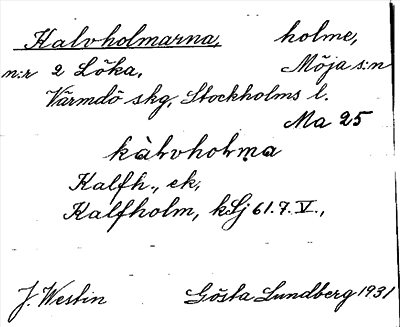 Kalvholmarna, holme,
n:r 2 Löka, Möja s:n
Värmdö skg, Stockholms l.
Ma 25
kàlvholma
Kalfh., ek,
Kalfholm, kSj 61.7.V.,
J. Westin Gösta Lundberg 1931